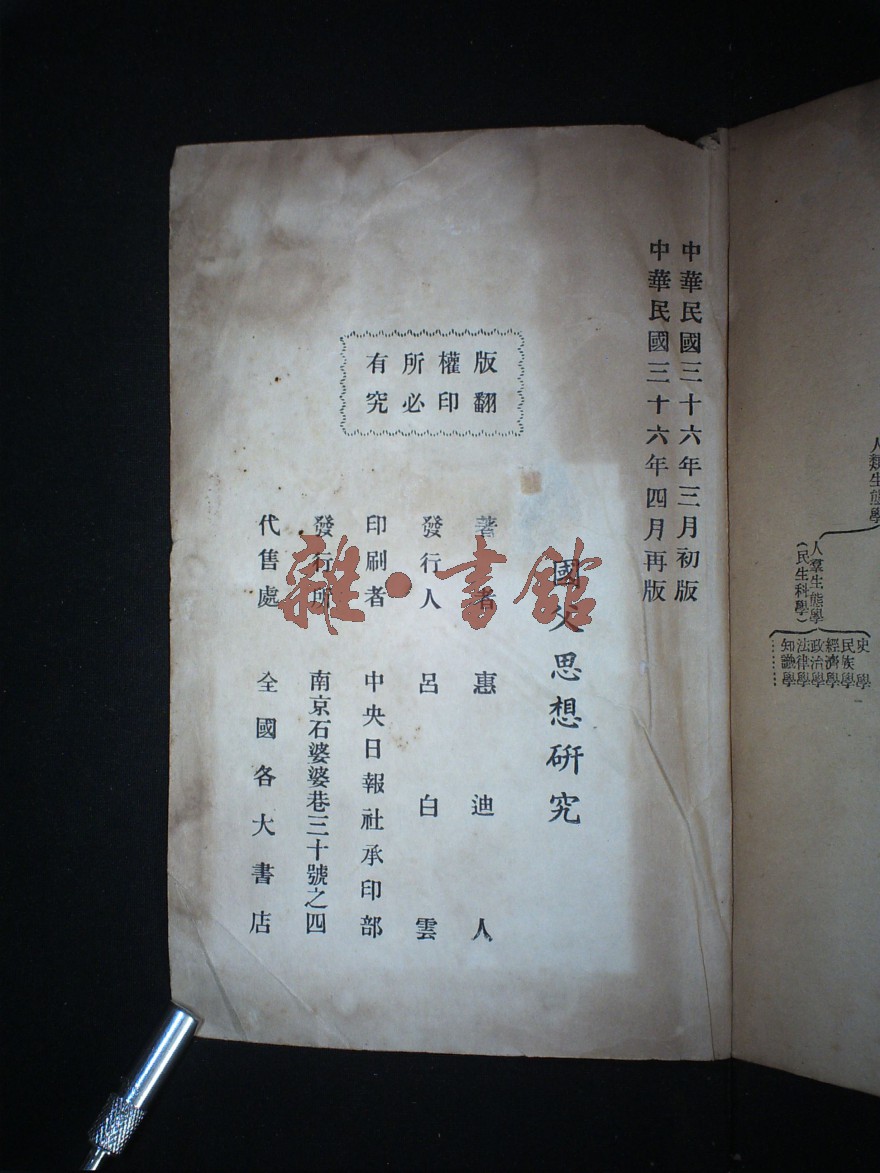 中華民國三十六年三月初版
中華民國三十六年四月再版
版權所有
翻印必究
國父思想研究
著者 惠迪人
發行人 呂白雲
印刷者 中央日報社承印部
發行所 南京石婆婆巷三十號之四
代售處 全國各大書店
雜·書館
人類生態學
人羣生態學
（民生科學）
史學
民族學
經濟學
政治學
法律學
知識學
……